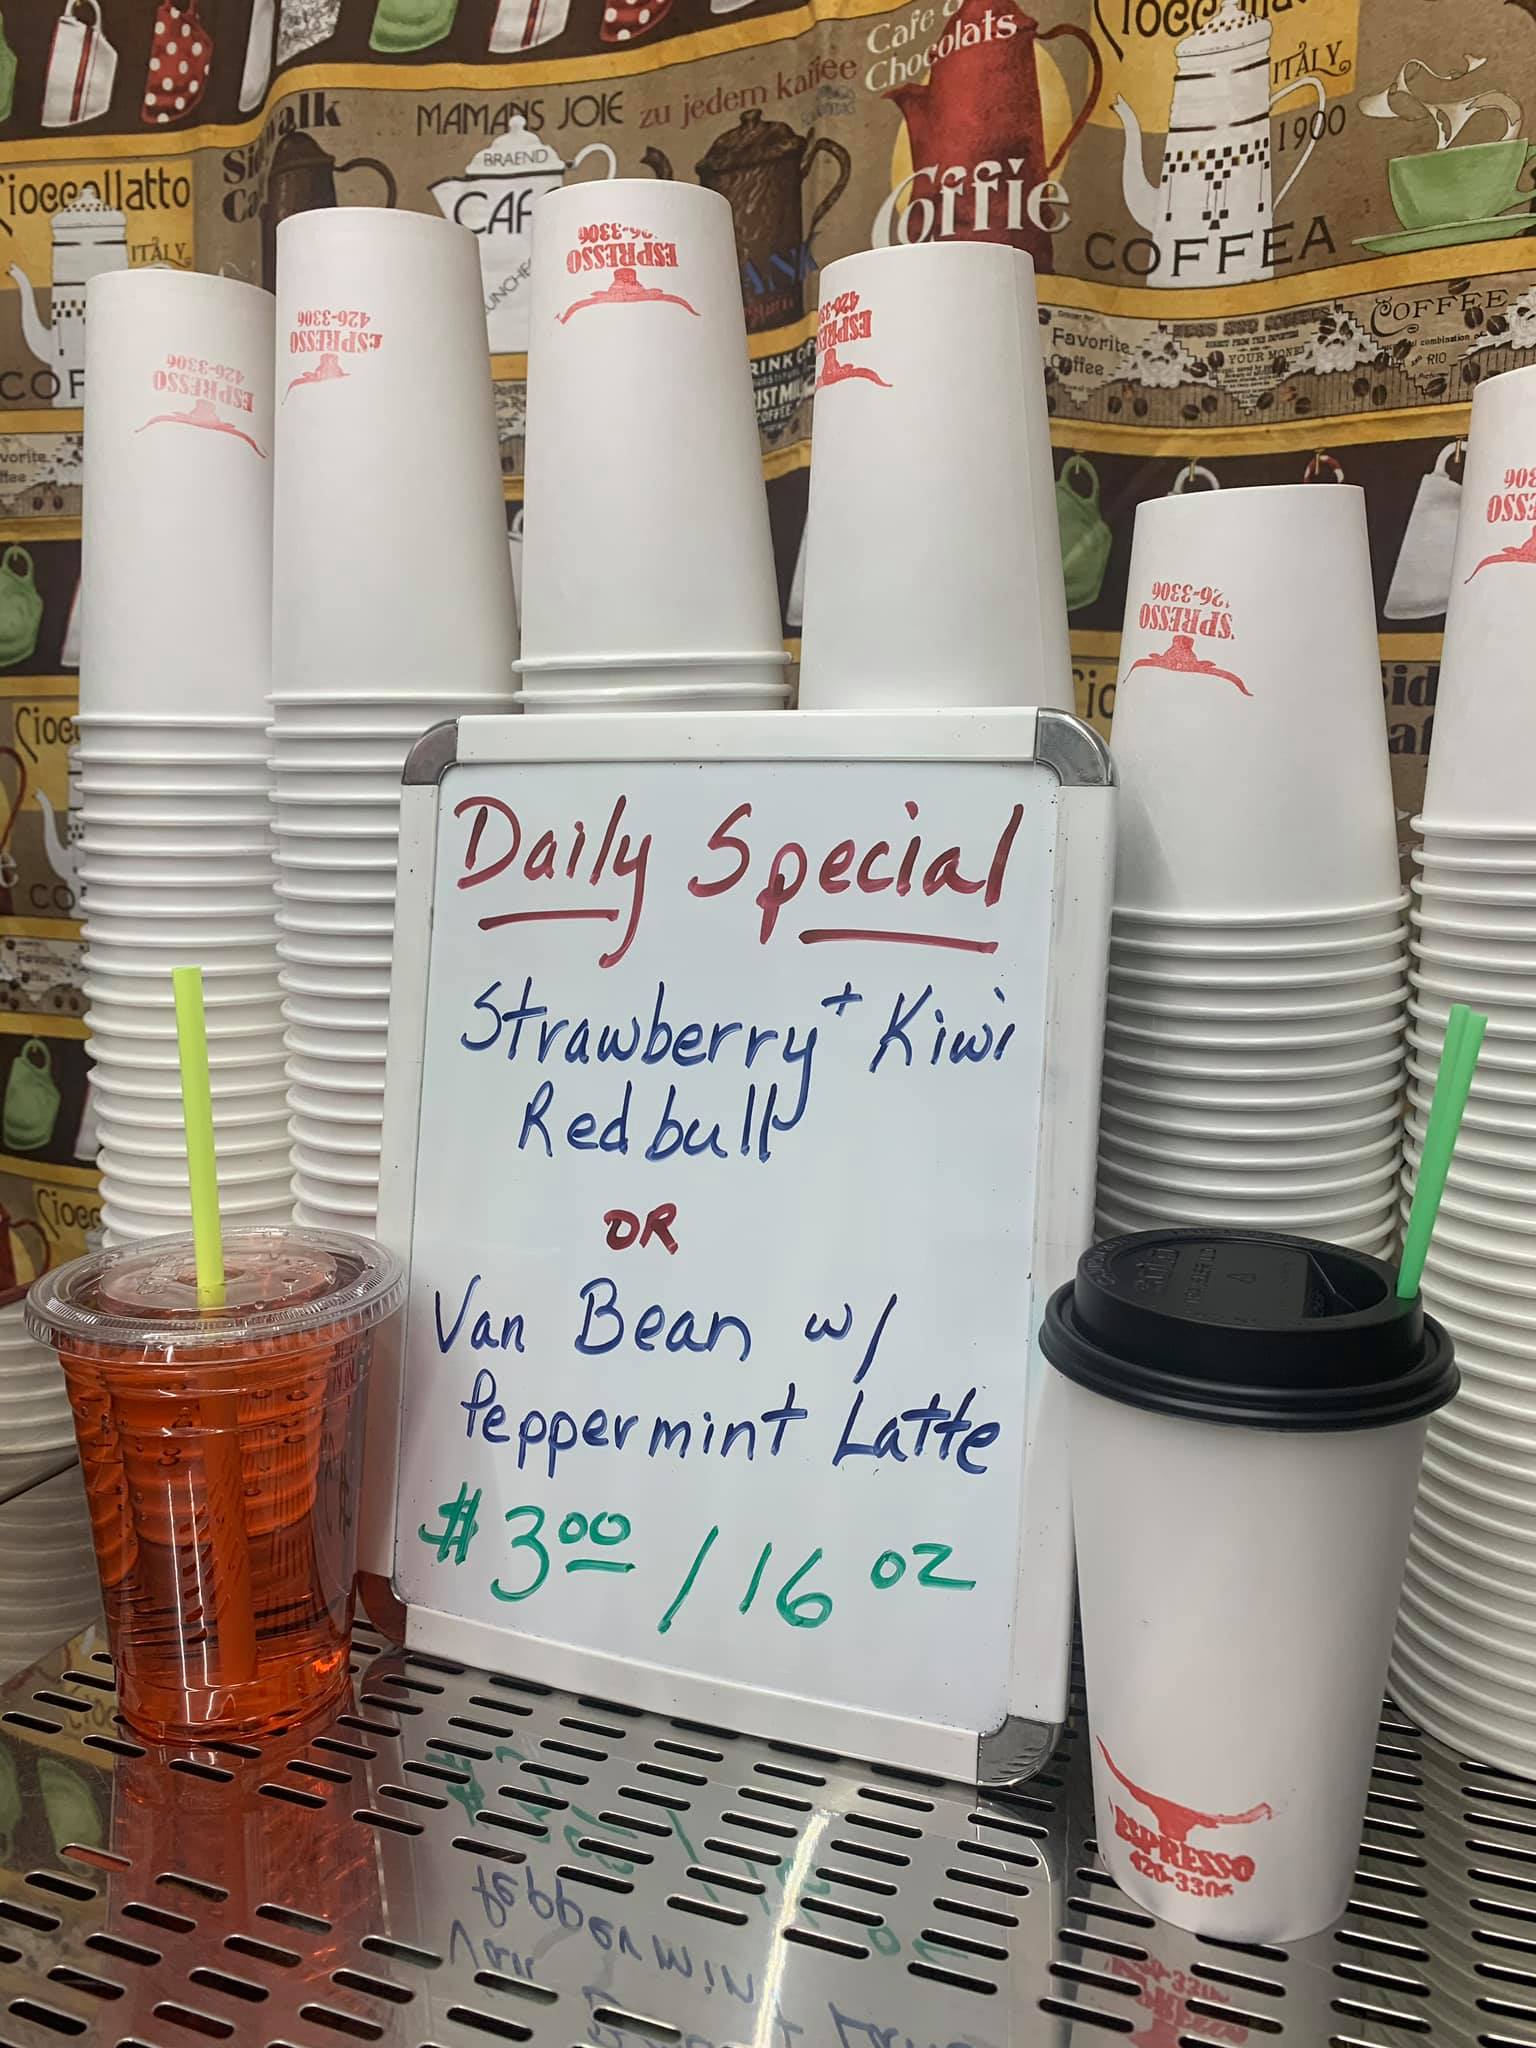 Cafe &
Chocolats
ITALY
1900
Sidewalk
MAMANS JOIE
zu jedem kaffee
BRAEND
CAF
Coffie
COFFEA
Cioccollatto
ITALY
COFFEE
Favorite
Coffee
YOUR MONEY
RIO
ESPRESSO
426-3306
ESPRESSO
426-3306
ESPRESSO
Daily Special
Strawberry + Kiwi
Redbull
OR
Van Bean w/
Peppermint Latte
$3.00 / 16 oz
ESPRESSO
426-3306